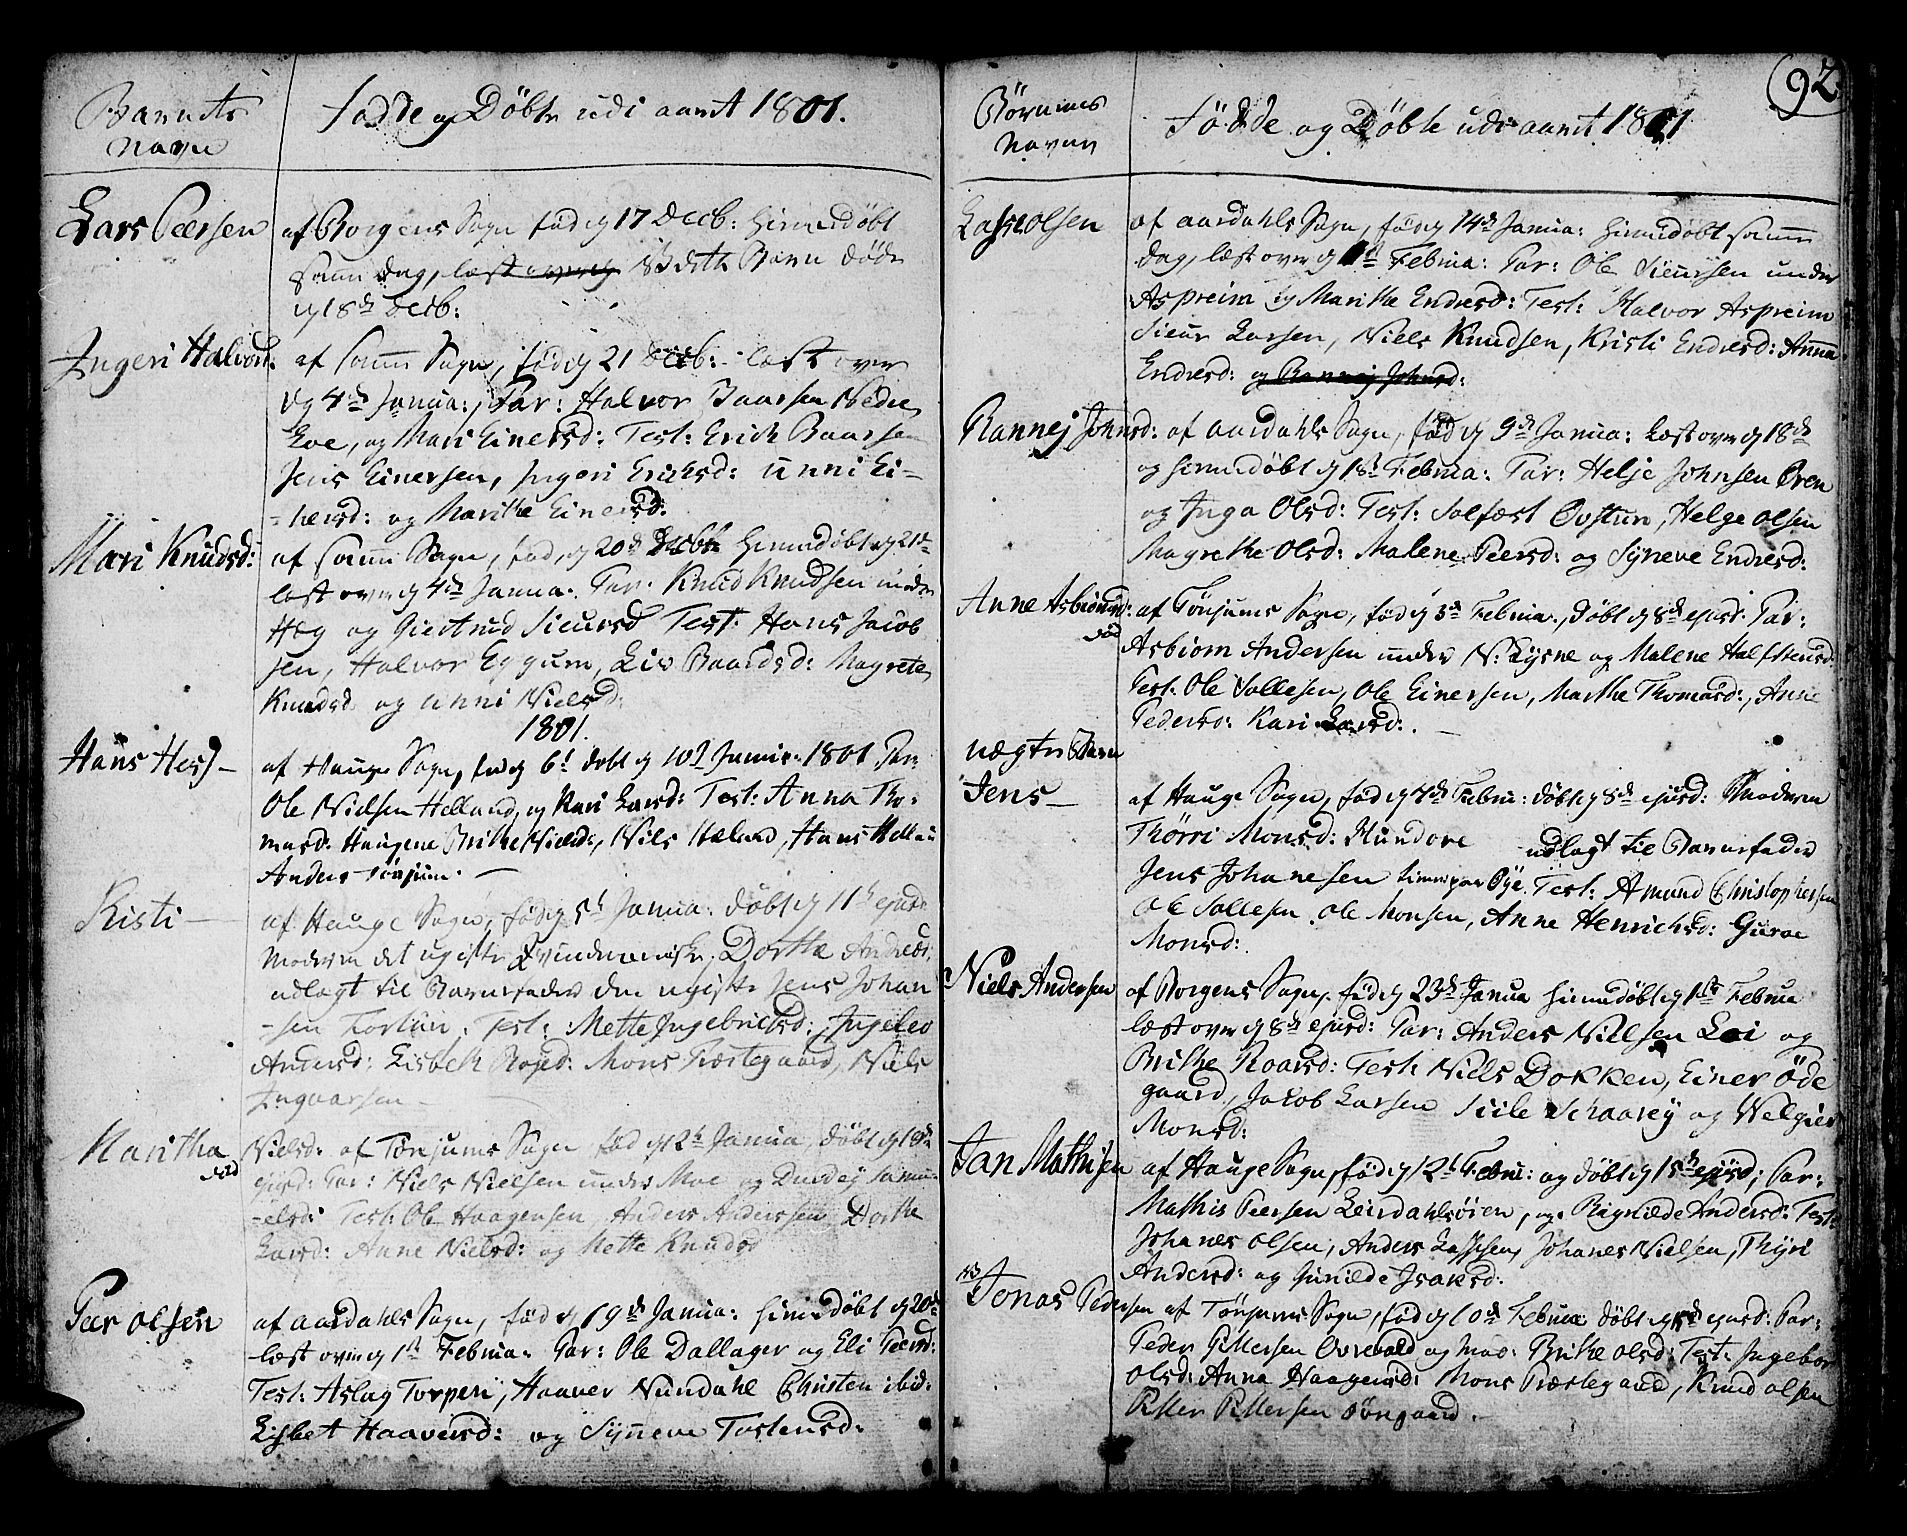 Barnets
Navn
Fødde og Døbte udi aaret 1801.
Lars Peersen
af Borgens Sogn fød d 17 Decb: hiemedøbt
samme Dag, læst over d dette Barn døde
d 18de Decb:
Ingeri Halvors:
af samme Sogn, fød d 21 Decb: læst over
d 4de Janua:, Par: Halvor Baarsen Nedre
Eoe, og Mari Einersd: Test: Erich Baarsen
Jens Einersen, Ingeri Erichsd: Unni Ei-
-nersd: og Marithe Einersd:
Mari Knudsd:
af samme Sogn, fød d 20de Decbr hiemdøbt d 21de
læst over d 4de Janua. Par. Knud Knudsen under
Hæg og Giertrud Sieursd Test: Hans Jacob
sen, Halvor Eggum, Liv Baardsd: Magrete
Knudsd og Unni Nielsd:
1801.
Hans Hess –
af Hauge Sogn, fød d 6t døbt d 10d Janua. 1801 Par:
Ole Nielsen Helland, og Kari Larsd: Test: Anna Tho-
masd: Haugene Brithe Nielsd:, Niels Hæland, Hans Hellan
Anders Tønjum. –
Kisti –
af Hauge Sogn, fød d 5t Janua. døbt d 11te ejusd.
Moderen det ugifte Qvindemeniske, Dorthe Andersd:
udlagt til Barnefader den ugifte Jens Johan
-sen Fortun. Test: Mette Ingebrichtsd:, Ingelev
Andersd: Lisbeth Rojed: Mons Præstegaard, Niels
Ingvarsen –
Maritha
Nielsd: af Tønjums Sogn fød d 12t Janua døbt d 18de
ejusd: Par: Niels Nielsen under Moe og Durdey Samu-
-elsd: Test: Ole Haagensen, Anders Andersen Dorthe
Larsd: Anne Nielsd: og Mette Knudsd
Peer Olsen
af Aardahls Sogn, fød d 19de Janua: hiemdøbt d 20de
læst over d 1ste Februa. Par: Ole Dallager og Eli Peersd:
Test: Aslag Torperi, Haaver Nundahl Christen ibid:
Lisbet Haaversd: og Synneve Tostensd:
92
Børnenes
Navne
Fødde og Døbte udi aaret 1801
Lasse Olsen
af Aardahls Sogn, fød d 14de Janua: hiemdøbt samme
dag, læst over d 1st Februa: Par: Ole Sieursen under
Aspreim og Marithe Endresd: Test: Halvor Aspreim
Sieur Larsen, Niels Knudsen, Kristi Endresd: Anna
Endresd: og Rannej Johnsd:
Rannej Johnsd:
af Aardahls Sogn, fød d 9de Janua: læst over d 18de
og hiemdøbt d 1ste Februa: Par: Helje Johnsen Øren
og Inga Olsd: Test: Solfæst Øvstun, Helge Olsen
Magrethe Olsd: Malene Peersd: og Syneve Endresd:
Anne Asbiornsd:
af Tønjums Sogn, fød d 3de Februa., døbt d 8de ejusd. Par:
Asbiorn Andersen under N: Lysne og Malene Halfstensd:
Test: Ole Sallesen, Ole Einersen, Marthe Thomasd:, Anne
Pedersd: Kari Larsd:. –
uægte Barn
Jens –
af Hauge Sogn, fød d 7de Februa: døbt d 8de ejusd: Moderen
Thørri Monsd: Hundere udlagt til Barnefader
Jens Johanesen Øye. Test: Amund Christophersen
Ole Sallesen, Ole Monsen, Anne Henrichsd: Guroe
Monsd:
Niels Andersen
af Borgens Sogn, fød d 23de Janua hiemdøbt d 1ste Februa
læst over d 8de ejusd: Par: Anders Nielsen Loi og
Brithe Roarsd: Test: Niels Dokken, Einer Øde
gaard, Jacob Larsen Sicile Schaarey og Welgier
Monsd:
Jan Mathisen
af Hauge Sogn, fød d 12t Februa: og døbt d 15de ejusd; Par:
Mathis Peersen Leirdahlsøren, og Rignilde Andersd: Test:
Johanes Olsen, Anders Lassesen, Johanes Nielsen, Thyri
Andersd: og Gunilde Isaksd:
NB
Jonas Pedersen
af Tønjums Sogn, fød d 10de Februa døbt d 15de ejusd: Par:
Peder Pettersen Ovrevold og Mad: Brithe Olsd: Test: Ingebor
Olsd: Anna Haagensd: Mons Præstegaard, Knud Olsen
Petter Pettersen Øregaard.